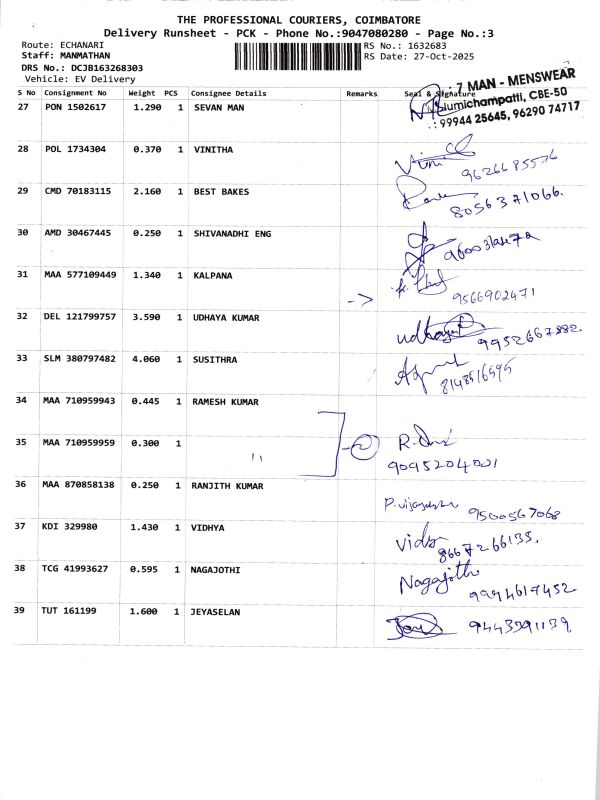 THE PROFESSIONAL COURIERS, COIMBATORE
Delivery Runsheet - PCK - Phone No.:9047080280 - Page No.:3
Route: ECHANARI RS No.: 1632683
Staff: MANMATHAN RS Date: 27-Oct-2025
DRS No.: DCJB163268303
Vehicle: EV Delivery
S No Consignment No Weight PCS Consignee Details Remarks Seal & Signature
7 MAN - MENSWEAR
CBE-50
99944 25645, 96290 74717
27 PON 1502617 1.290 1 SEVAN MAN
28 POL 1734304 0.370 1 VINITHA
29 CMD 70183115 2.160 1 BEST BAKES 8056371066.
30 AMD 30467445 0.250 1 SHIVANADHI ENG
31 MAA 577109449 1.340 1 KALPANA 9566902471
32 DEL 121799757 3.590 1 UDHAYA KUMAR 9952667882.
33 SLM 380797482 4.060 1 SUSITHRA 8148516595
34 MAA 710959943 0.445 1 RAMESH KUMAR
35 MAA 710959959 0.300 1 11 9095204001
36 MAA 870858138 0.250 1 RANJITH KUMAR 9500567068
37 KDI 329980 1.430 1 VIDHYA 8667266135.
38 TCG 41993627 0.595 1 NAGAJOTHI Nagajothi 9994617452
39 TUT 161199 1.600 1 JEYASELAN 9443391139.